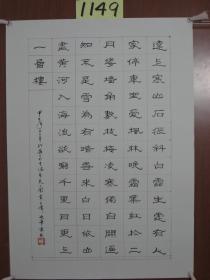 1149
遠上寒山石徑斜白雲生處有人
家停車坐愛楓林晚霜葉紅於二
月花墻角數枝梅凌寒獨自開遙
知不是雪為有暗香來白日依山
盡黃河入海流欲窮千里目更上
一層樓